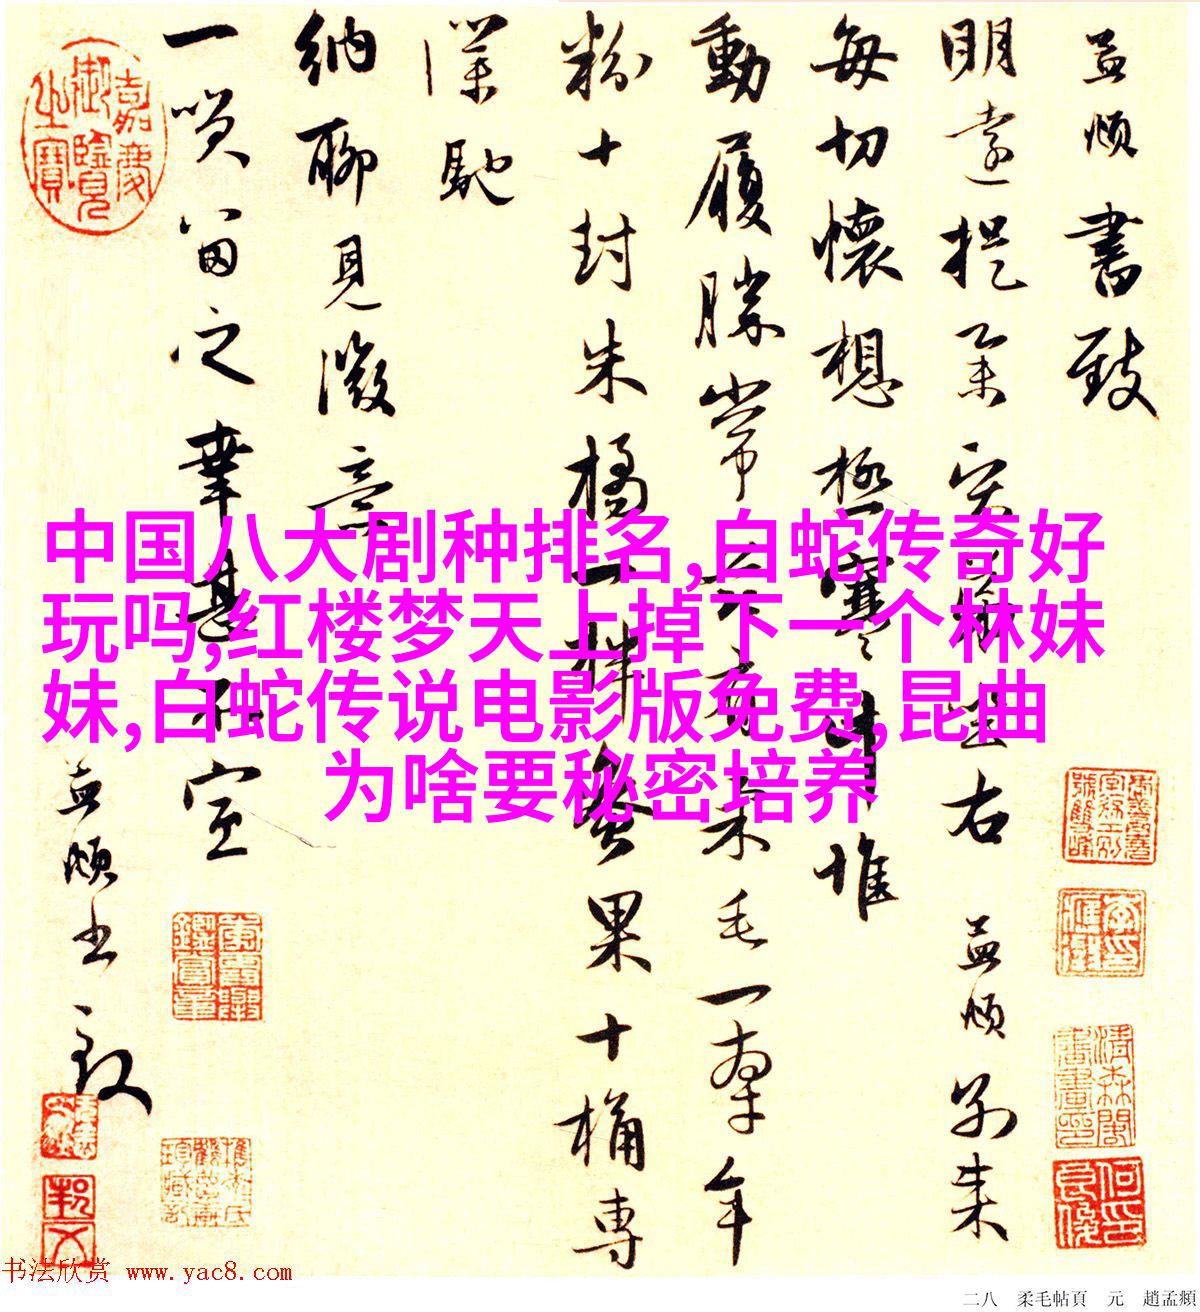 孟頫書致
明遠提舉契坐右 孟頫別來
每切懷想極寒惟
動履勝常今有柔毛一牽年
粉十封朱橘一果十桶專
僕馳
納聊見微意
一笑留之幸甚不宣
孟頫書致
嘉慶御覽之寶
中国八大剧种排名,白蛇传奇好
玩吗,红楼梦天上掉下一个林妹
妹,白蛇传说电影版免费,昆曲
为啥要秘密培养
书法欣赏 www.yac8.com
二八 柔毛帖頁 元 趙孟頫